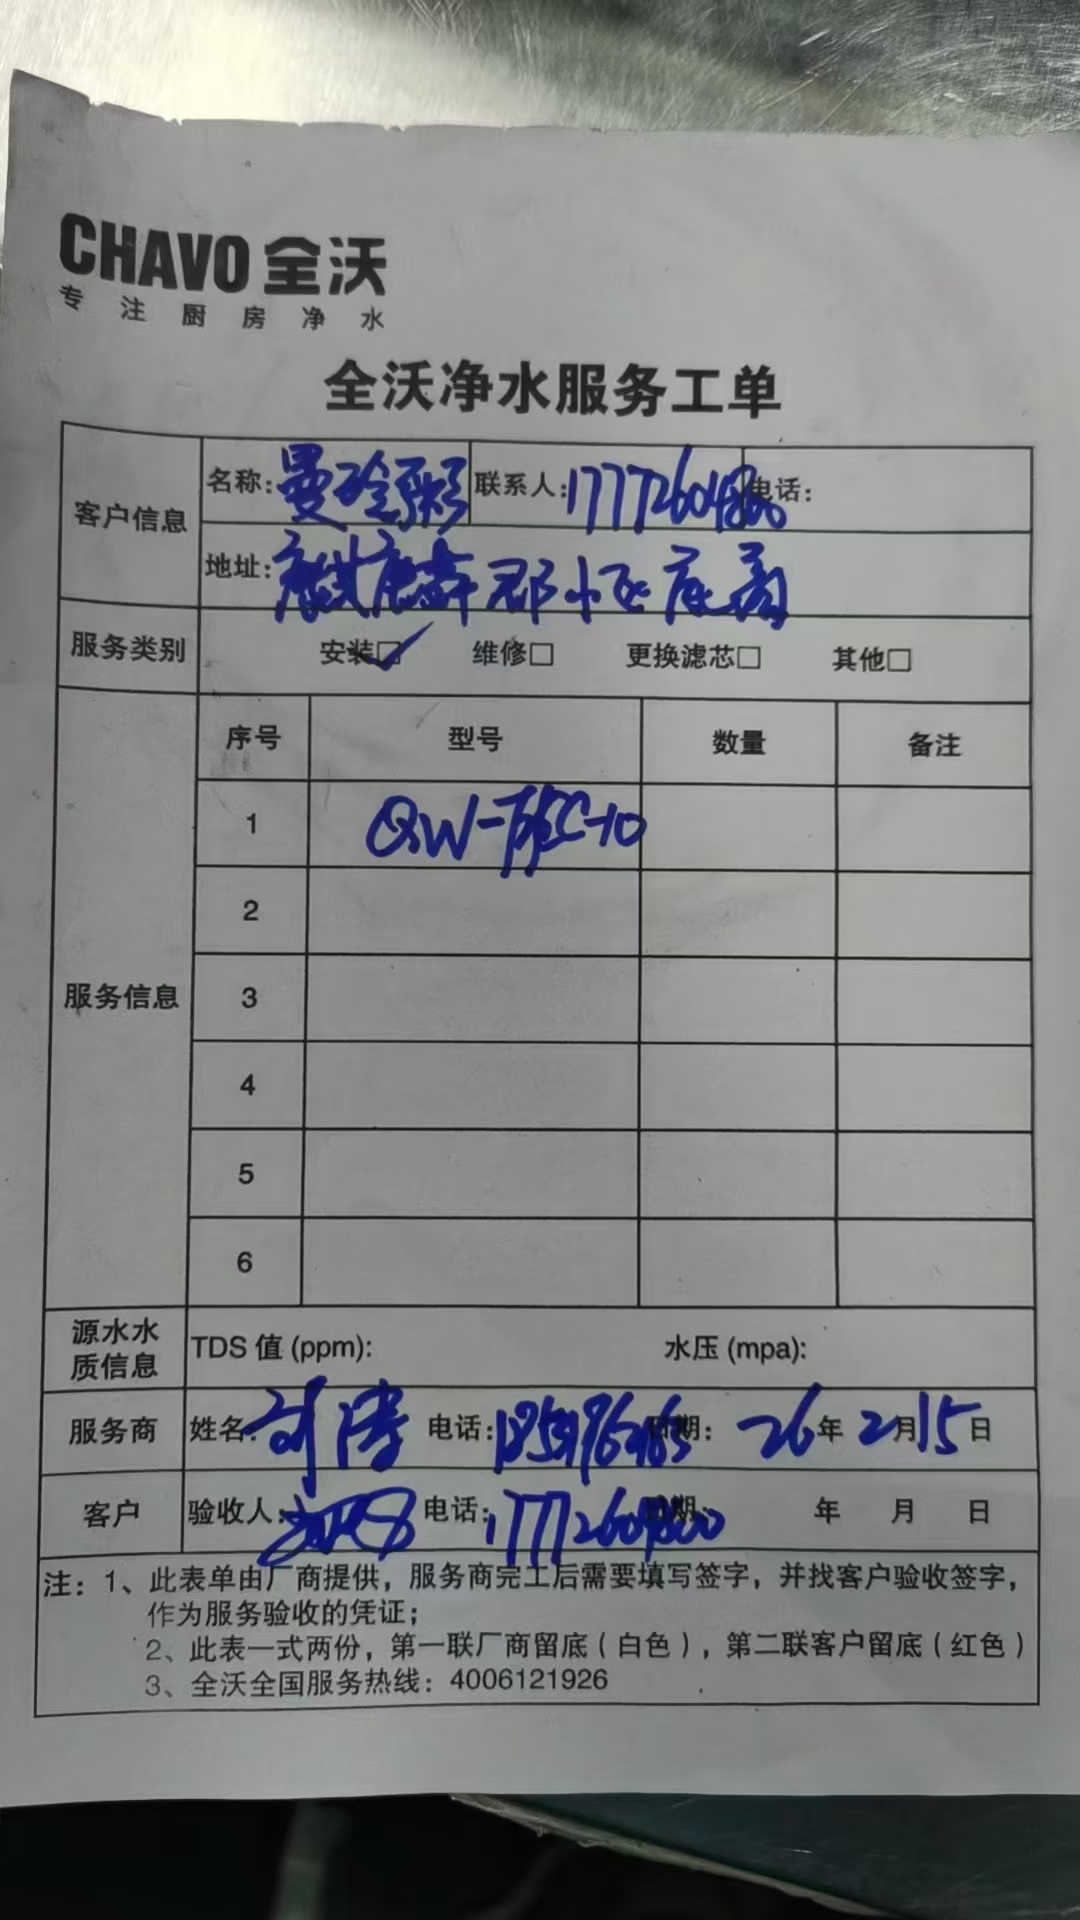 CHAVO 全沃
专注厨房净水
全沃净水服务工单
客户信息
名称:曼玲粥 联系人:17772604800 电话:
地址:麒麟郡小区底商
服务类别 安装☑ 维修□ 更换滤芯□ 其他□
服务信息
序号 型号 数量 备注
1 QW-
2
3
4
5
6
源水水质信息 TDS 值 (ppm): 水压 (mpa):
服务商 姓名:刘涛 电话: 日期: 26年2月15日
客户 验收人: 电话:17772604800 日期: 年 月 日
注:1、此表单由厂商提供,服务商完工后需要填写签字,并找客户验收签字,
作为服务验收的凭证;
2、此表一式两份,第一联厂商留底(白色),第二联客户留底(红色)
3、全沃全国服务热线:4006121926